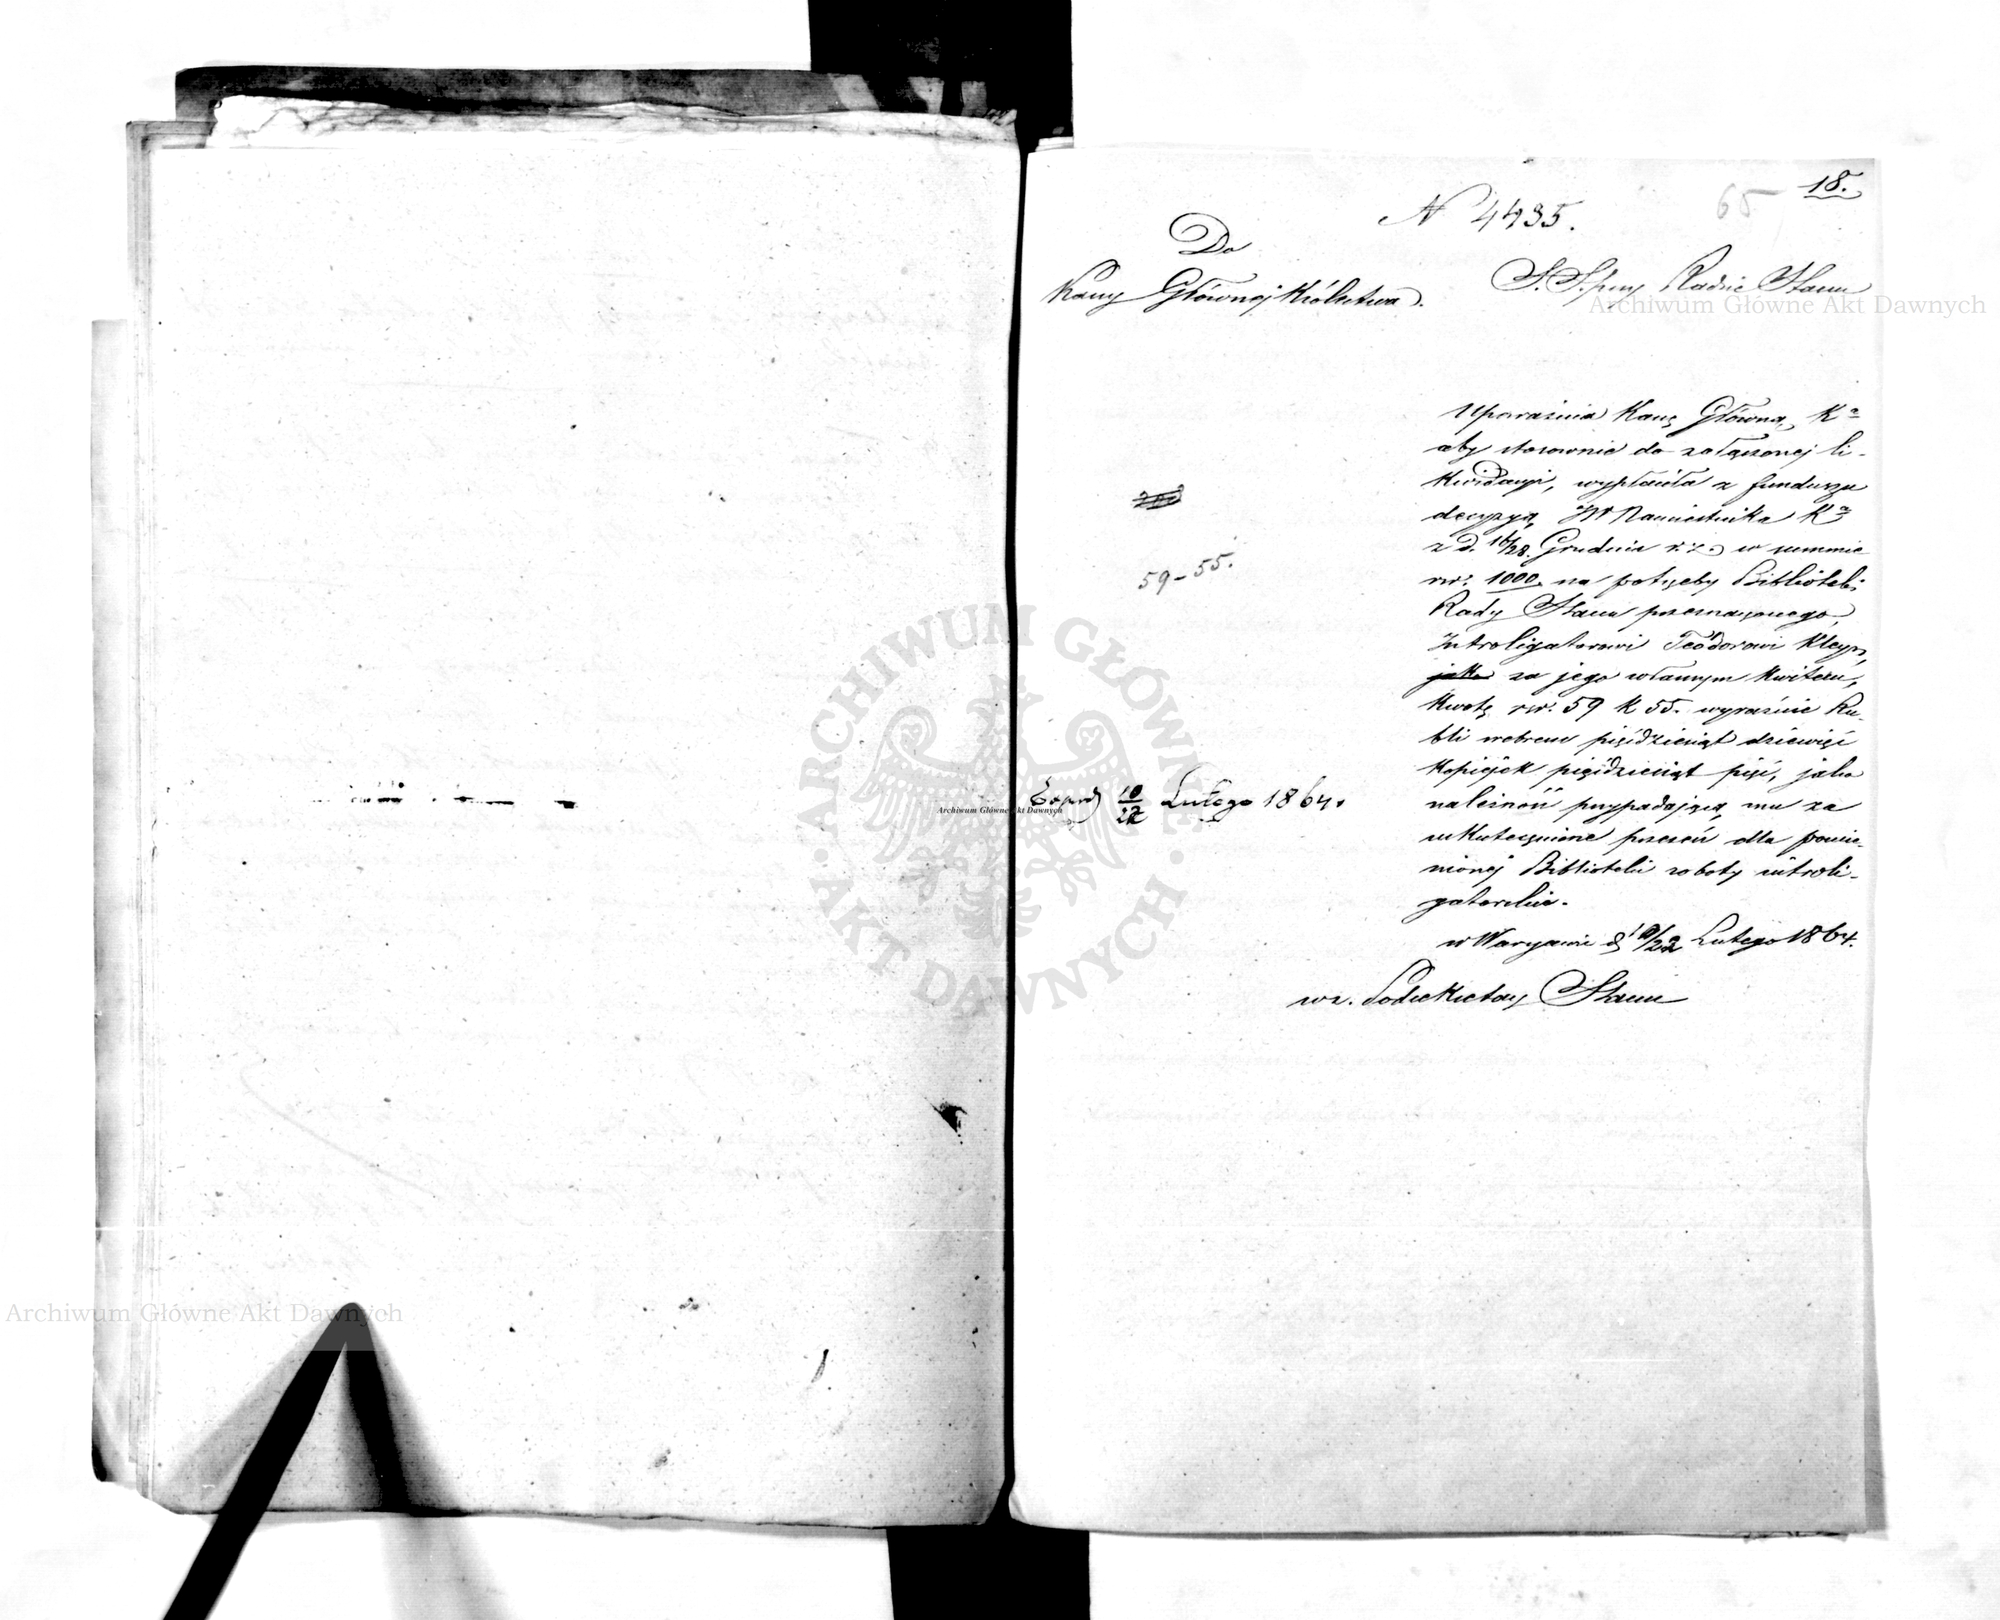 18.
65
N 4435.
Do
Kassy Głównej Królestwa.
S. S. przy Radzie Stanu
Upoważnia Kassę Główną Kª
aby stosownie do załączonej li-
kwidacyi, wypłaciła z funduszu
decyzyą JW Namiestnika Kª
z d. 16/28. Grudnia r. z. w summie
rsr. 1000, na potrzeby Biblioteki
Rady Stanu przeznaczonego,
Introligatorowi Teodorowi
jako za jego własnym kwitem,
kwotę rsr. 59 k 55. wyraźnie Ru-
bli srebrem pięćdziesiąt dziewięć
kopiejek pięćdziesiąt pięć, jako
należność przypadającą mu za
uskutecznione przezeń dla pomie-
nionej Biblioteki roboty introli-
gatorskie.
w Warszawie d. 10/22 Lutego 1864.
wz. Podsekretarz Stanu
59-55.
Exped 10/22 Lutego 1864.
Archiwum Główne Akt Dawnych
Archiwum Główne Akt Dawnych
Archiwum Główne Akt Dawnych
ARCHIWUM GŁÓWNE · AKT DAWNYCH ·